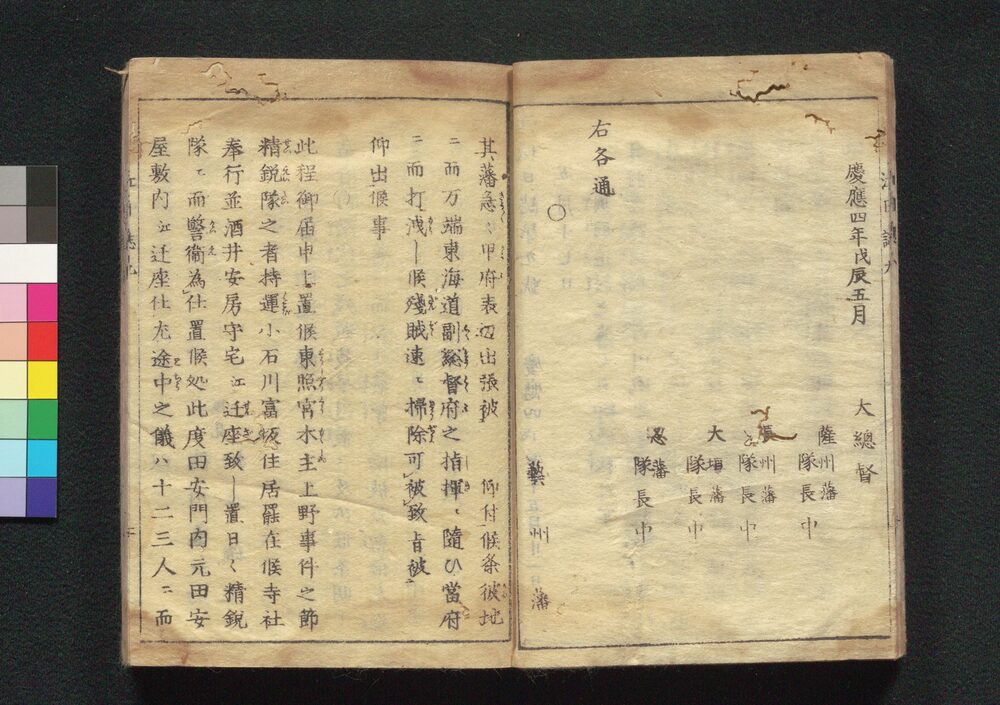 慶應四年戊辰五月
大總督
薩州藩
隊長中
張州藩
隊長中
大垣藩
隊長中
忍藩
隊長中
右各通
○
藝州藩
其藩急々甲府表迄出張被 仰付候条彼地
ニ而万端東海道副総督府之指揮ニ隨ひ當府
ニ而打洩し候殘賊速ニ掃除可被致旨被
仰出候事
此程御届申上置候東照宮木主上野事件之節
精鋭隊之者持運小石川富坂住居罷在候寺社
奉行並酒井安房守宅江迁座致し置日々精鋭
隊ニ而警衛為仕置候処此度田安門内元田安
屋敷内江迁座仕尤途中之儀ハ十二三人ニ而